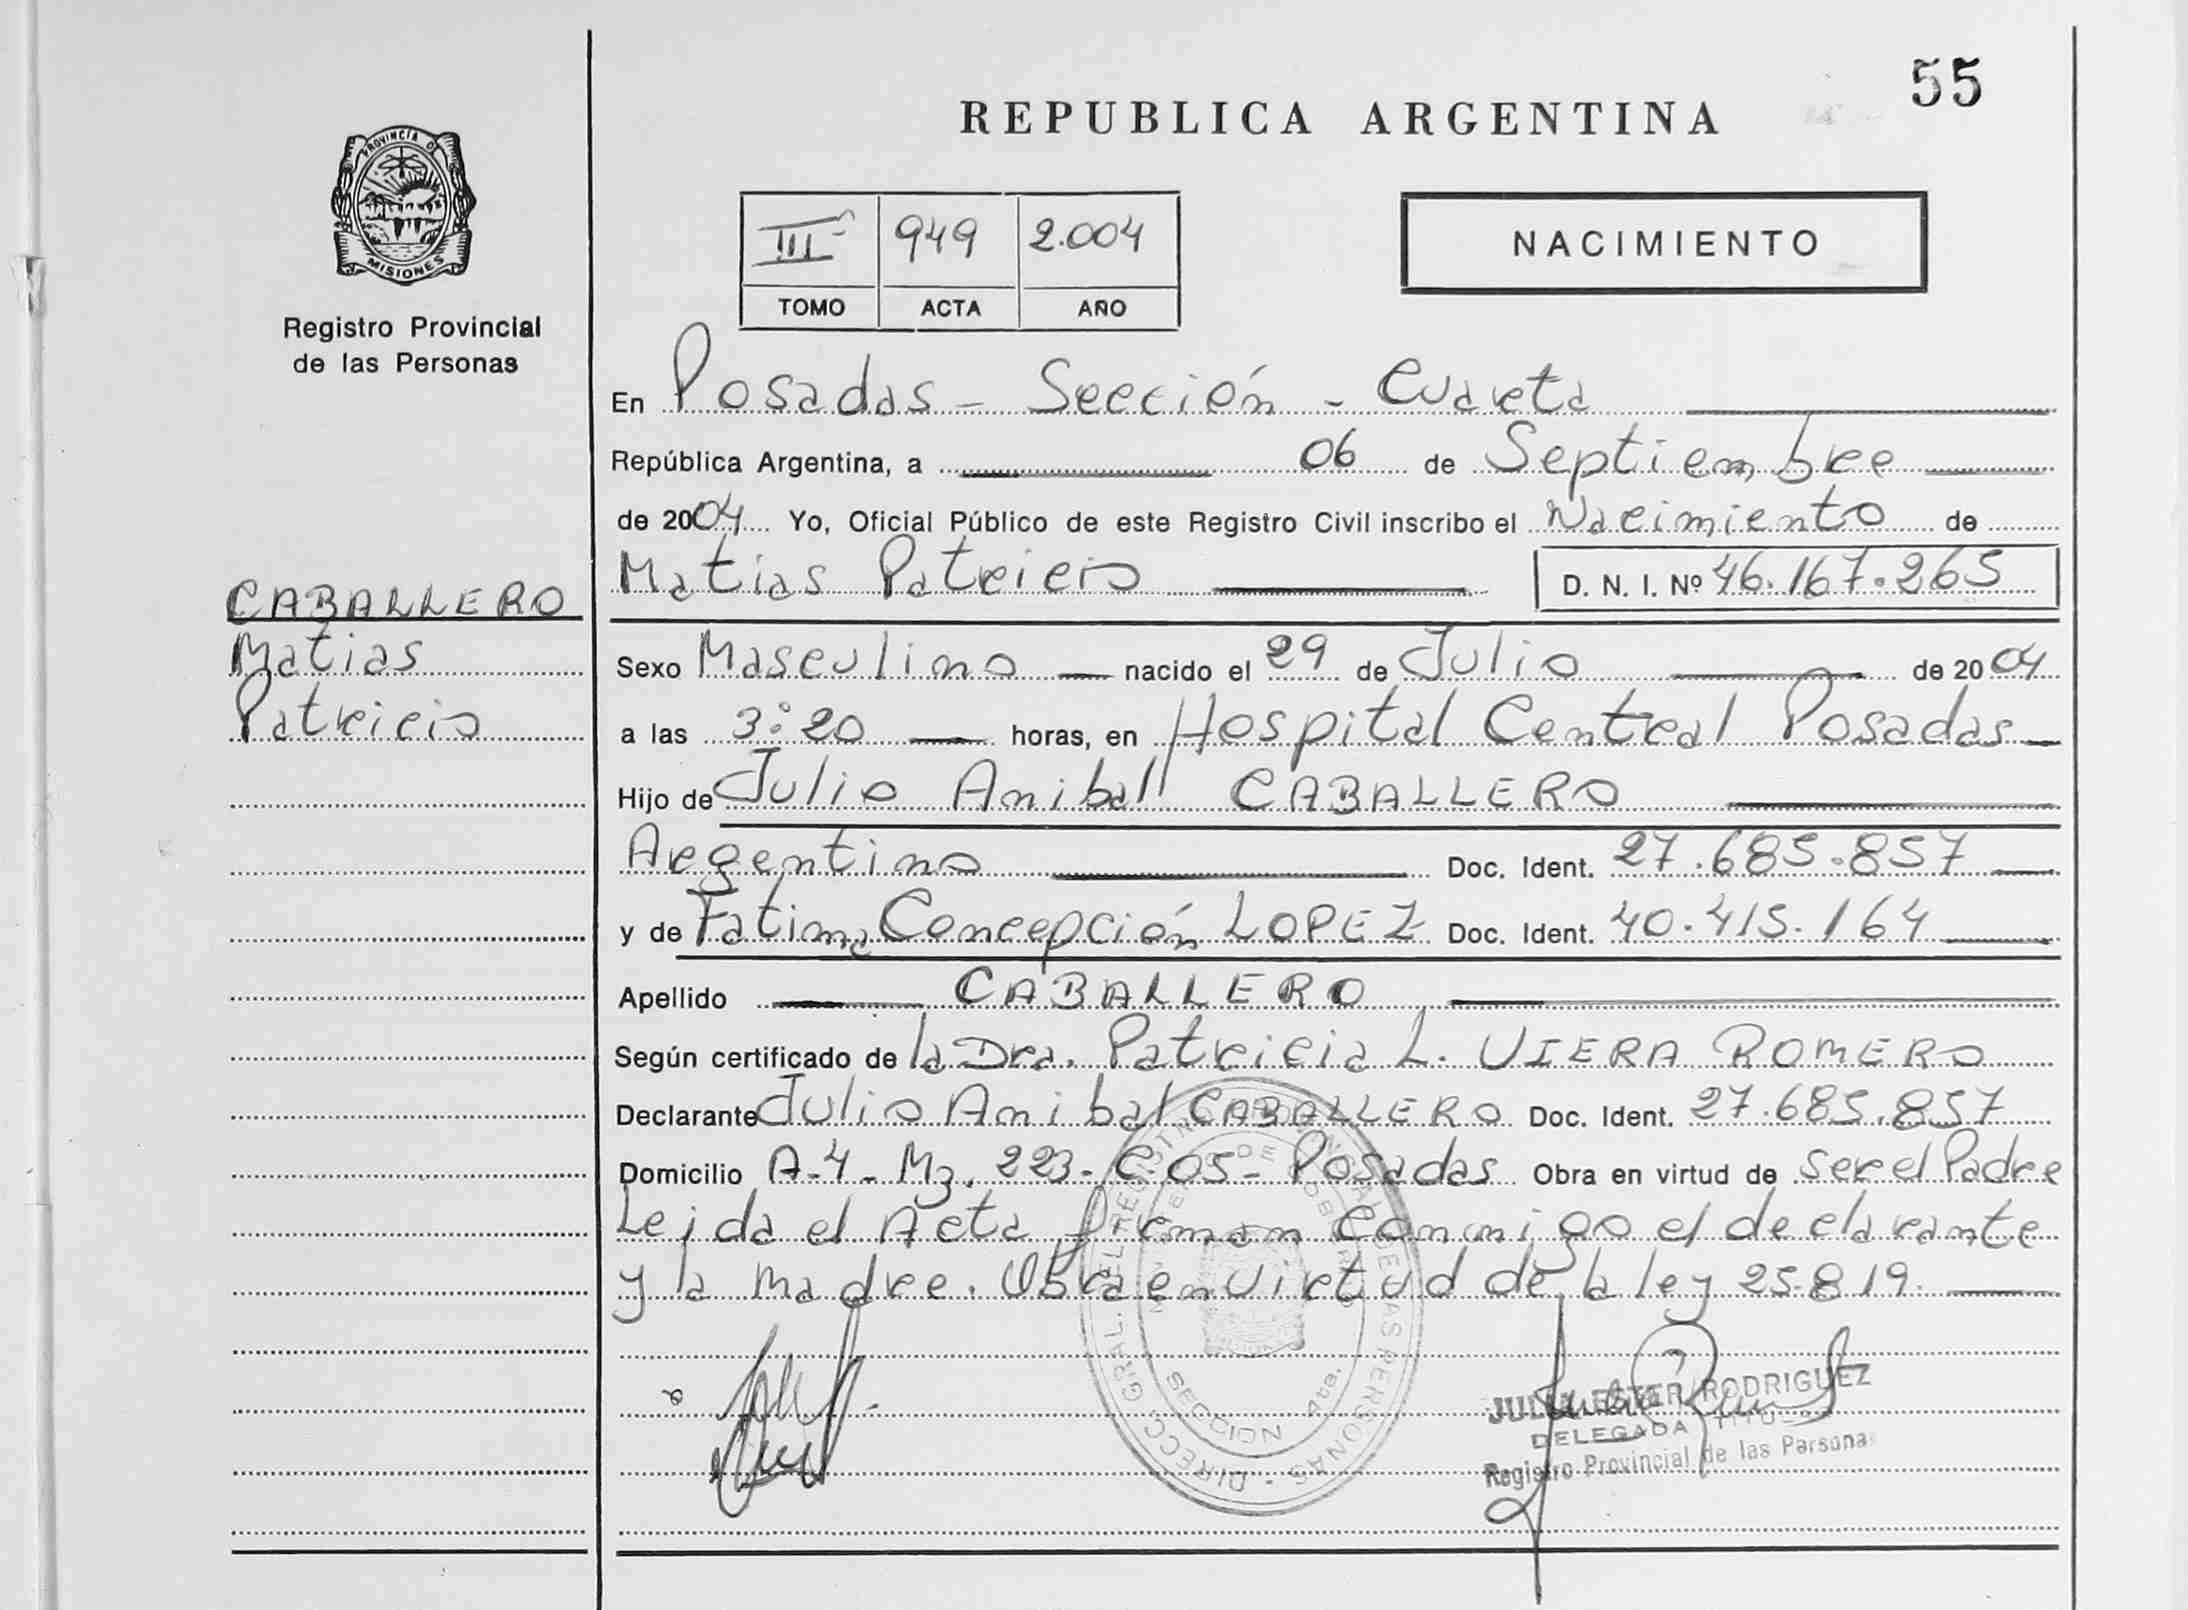 55
REPUBLICA ARGENTINA
PROVINCIA D
MISIONES
Registro Provincial
de las Personas
III 949 2.004
TOMO ACTA AÑO
NACIMIENTO
En Posadas - Sección - Cuarta
República Argentina, a 06 de Septiembre
de 2004 Yo, Oficial Público de este Registro Civil inscribo el Nacimiento de
Matias Patricio D. N. I. Nº 46.167.265
CABALLERO
Matias
Patricio
Sexo Masculino nacido el 29 de Julio de 2004
a las 3:20 horas, en Hospital Central Posadas
Hijo de Julio Anibal CABALLERO
Argentino Doc. Ident. 27.685.857
y de Fatima Concepción LOPEZ Doc. Ident. 40.415.164
Apellido CABALLERO
Según certificado de la Dra. Patricia L. VIERA ROMERO
Declarante Julio Anibal CABALLERO Doc. Ident. 27.685.857
Domicilio A-4 - Mz. 223 - C. 05 - Posadas Obra en virtud de ser el Padre
Leida el Acta firman conmigo el declarante
y la madre. Obra en virtud de la ley 25.819.
DIRECC. GRAL. DEL REGISTRO PROVINCIAL DE LAS PERSONAS
SECCION 4ta.
JULIA ESTER RODRIGUEZ
DELEGADA TITULAR
Registro Provincial de las Personas